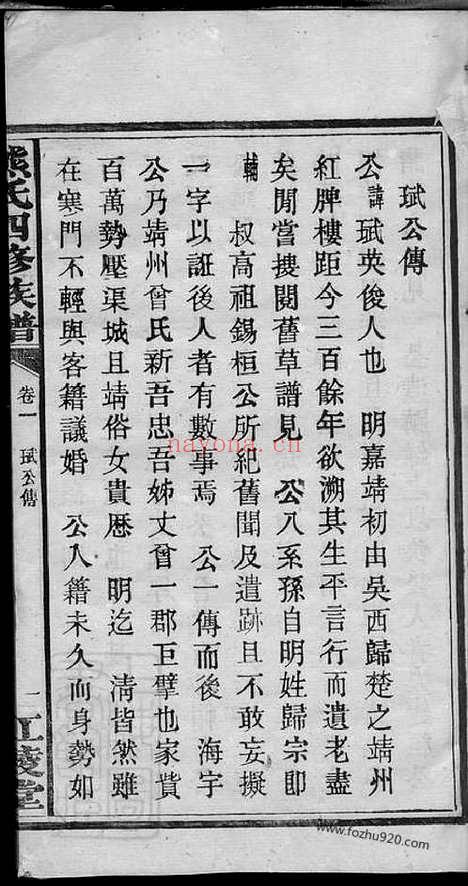 珷公傳
公諱珷英俊人也　明嘉靖初由吳西歸楚之靖州
紅牌樓距今三百餘年欲溯其生平言行而遺老盡
矣閒嘗搜閱舊草譜見　公八系孫自明姓歸宗即
輔　叔高祖錫桓公所紀舊聞及遺跡且不敢妄擬
一字以誑後人者有數事焉　公一傳而後　海宇
公乃靖州曾氏新吾忠吾姊丈曾一郡巨擘也家貲
百萬勢壓渠城且靖俗女貴歷　明迄　清皆然雖
在寒門不輕與客籍議婚　公入籍未久而身勢如
熊氏四修族譜
卷一
珷公傳
一
江陵堂
nayona.cn
www.fozhu920.com